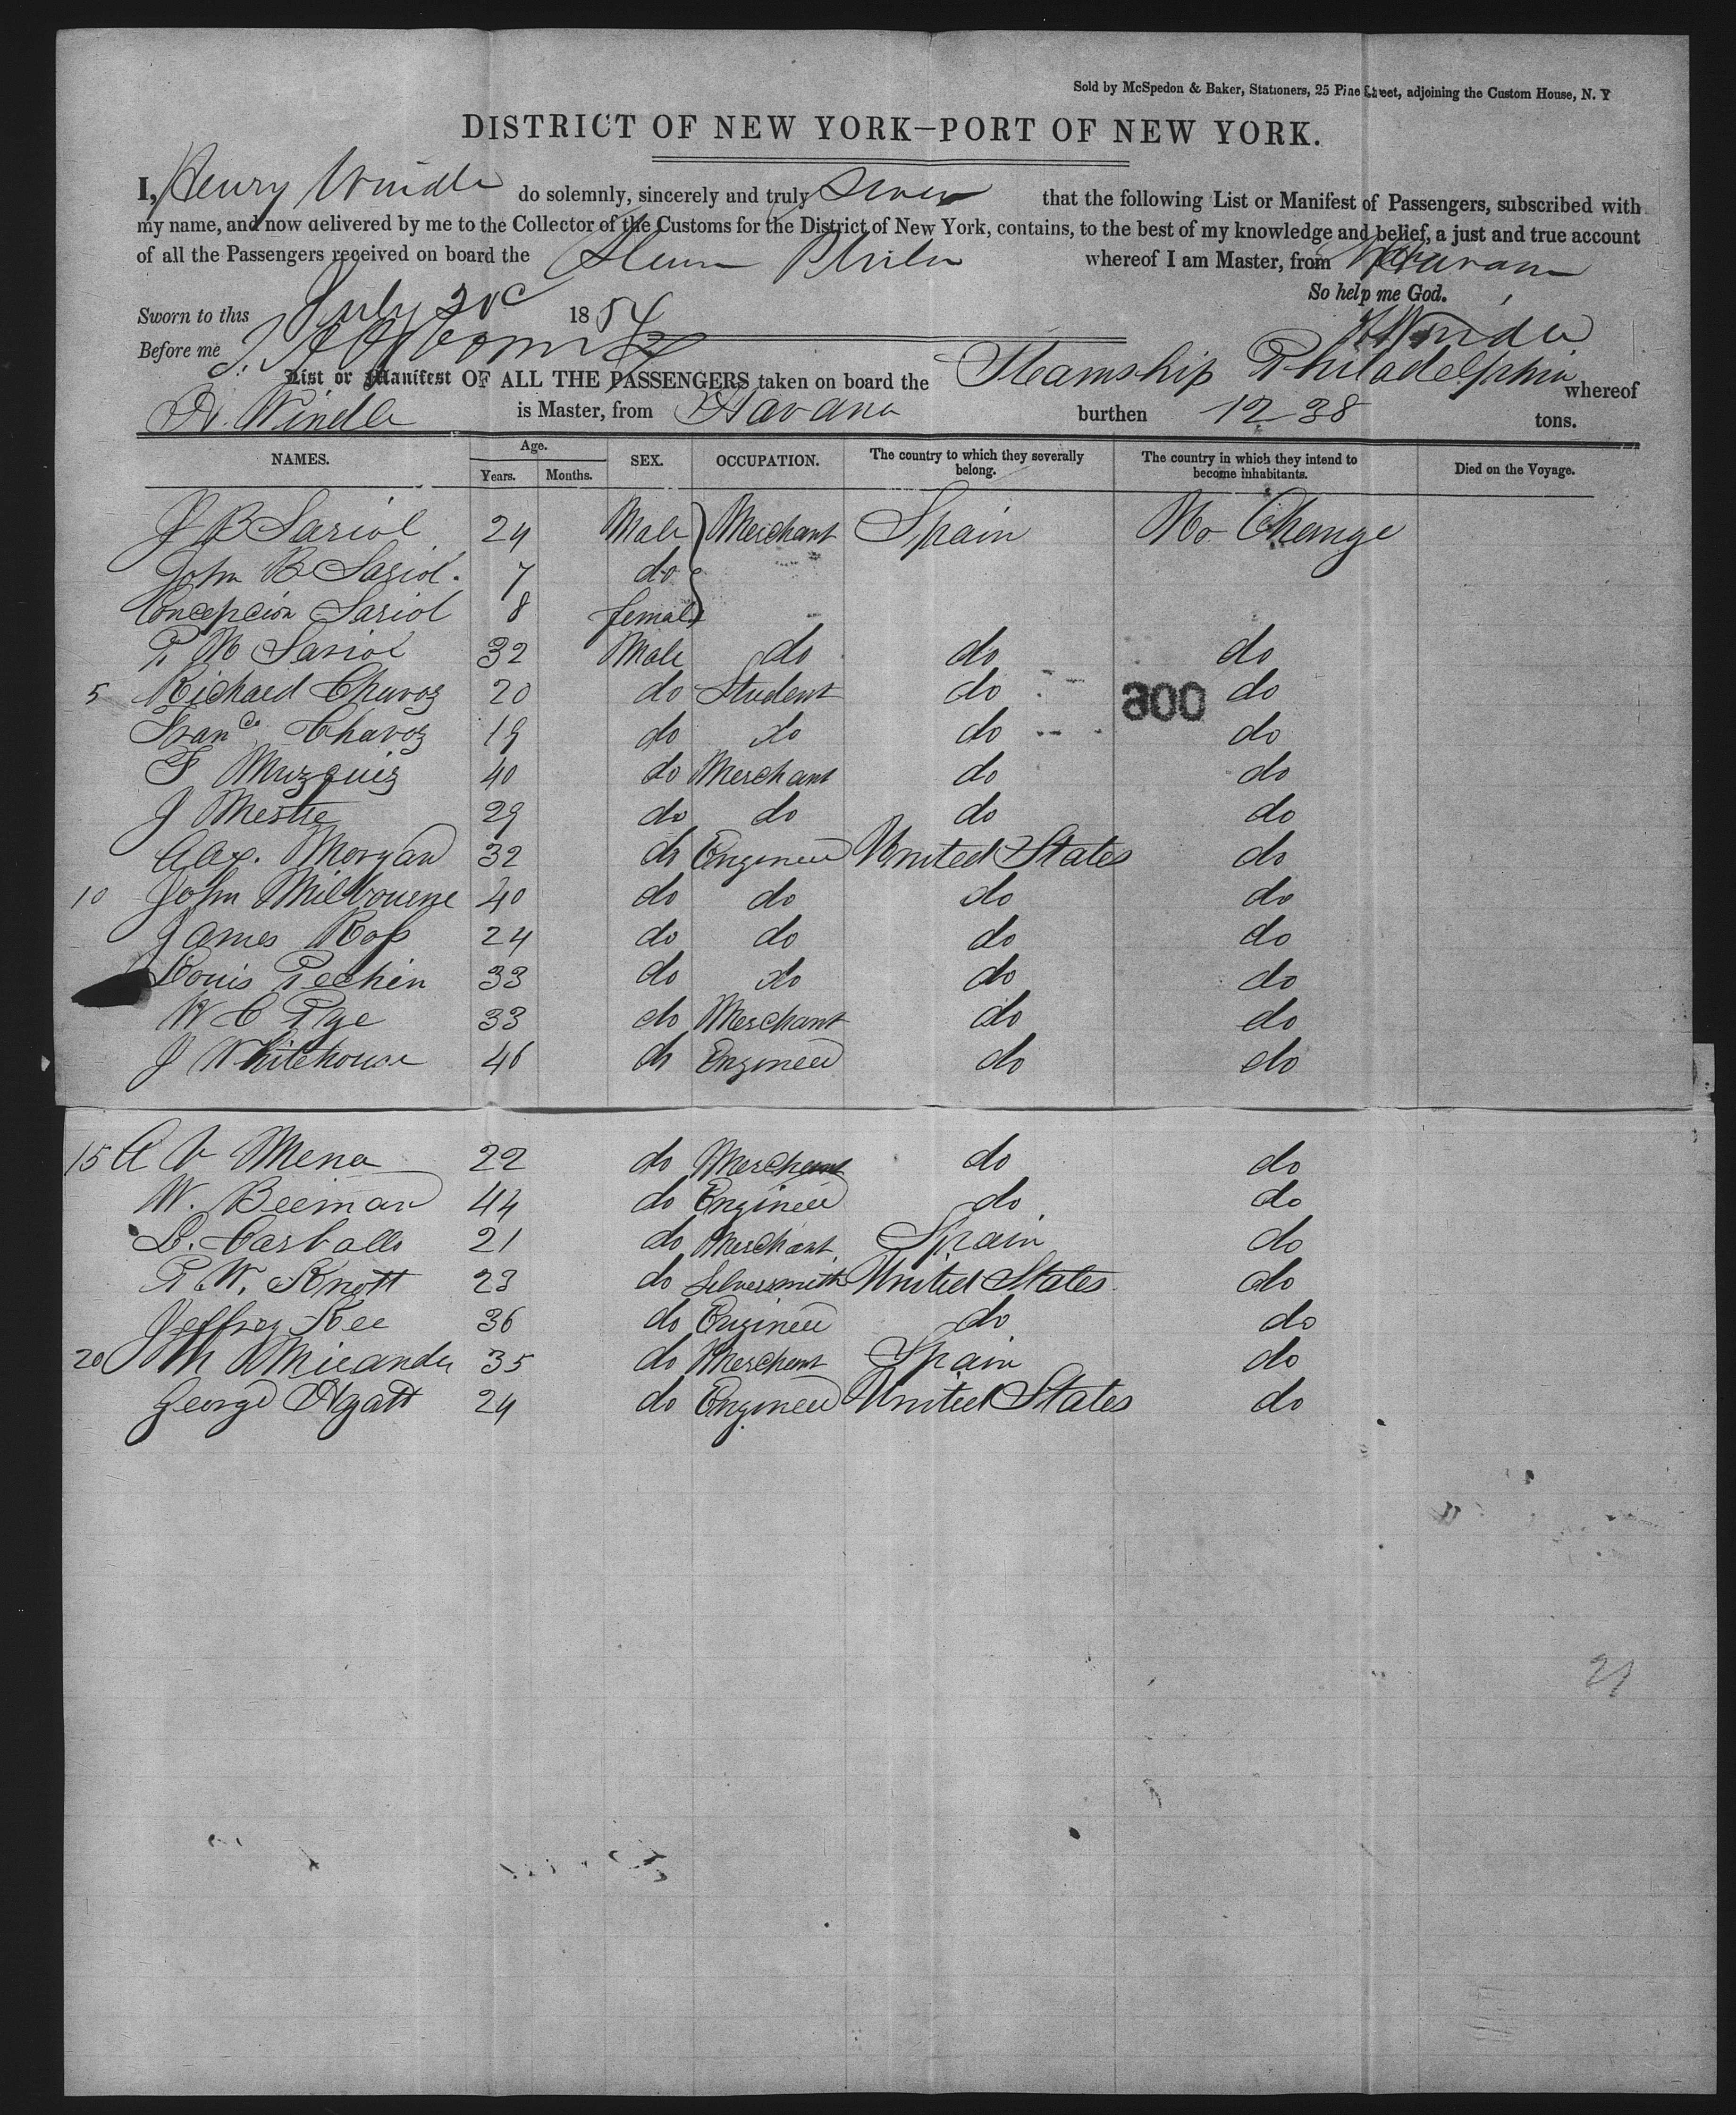 Sold by McSpedon & Baker, Stationers, 25 Pine Street, adjoining the Custom House, N. Y
DISTRICT OF NEW YORK—PORT OF NEW YORK.
I, Henry Windle do solemnly, sincerely and truly swear that the following List or Manifest of Passengers, subscribed with
my name, and now delivered by me to the Collector of the Customs for the District of New York, contains, to the best of my knowledge and belief, a just and true account
of all the Passengers received on board the whereof I am Master, from Havana
So help me God.
Sworn to this July 1854 H Windle
Before me
List or Manifest OF ALL THE PASSENGERS taken on board the Steamship Philadelphia whereof
H. Windle is Master, from Havana burthen 1238 tons.
NAMES. Age. Years. Months. SEX. OCCUPATION. The country to which they severally belong. The country in which they intend to become inhabitants. Died on the Voyage.
J B Sariol 24 Male Merchant Spain No Change
John B Sariol. 7 do
Concepcion Sariol 8 female
P. M Sariol 32 Male do do do
5 Richard Chavoz 20 do Student do 600 do
Franco. Chavoz 19 do do do do
F Muzquiz 40 do Merchant do do
J Mestre 29 do do do do
Alex. Morgan 32 do Engineer United States do
10 John Milbourne 40 do do do do
James Ross 24 do do do do
Louis Pechin 33 do do do do
W C Pye 33 do Merchant do do
J Whitehouse 46 do Engineer do do
15 A V Mena 22 do Merchant do do
W. Beeman 44 do Engineer do do
L. Carballo 21 do Merchant Spain do
P. W. Knott 23 do Silversmith United States do
Jeffrey Kee 36 do Engineer do do
20 M Miranda 35 do Merchant Spain do
George Agatt 24 do Engineer United States do
21